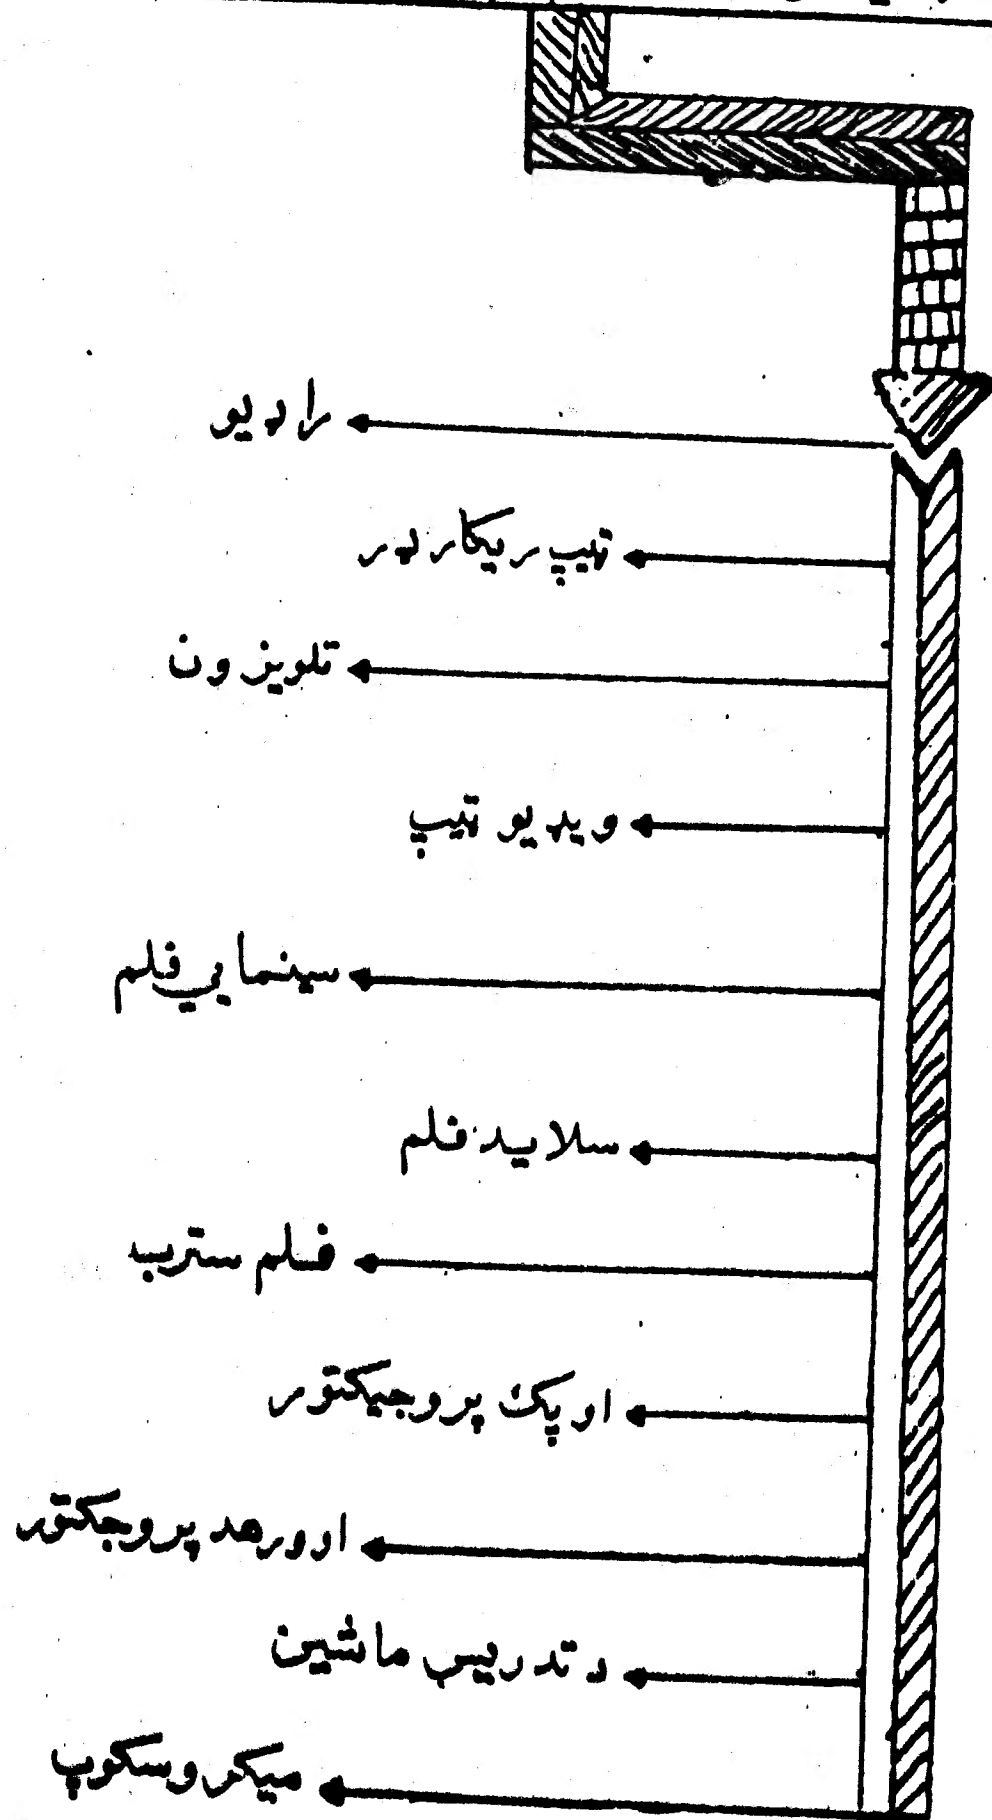 راډیو
ټیپ ریکارډر
تلویزون
ویډیو ټیپ
سینمایي فلم
سلاید فلم
فلم ستریپ
اوپک پروجیکتور
اوورهد پروجکتور
د تدریس ماشین
میکروسکوپ